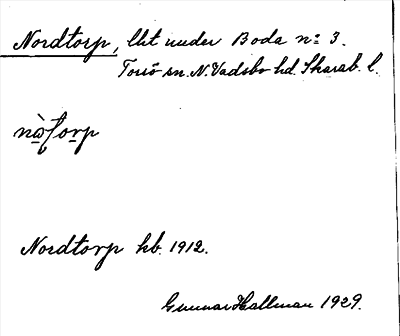 Nordtorp, lht under Boda n:o 3.
Torsö sn. N. Vadsbo hd. Skarab. l.
nòtorp
Nordtorp kb. 1912.
Gunnar Hallman 1929.